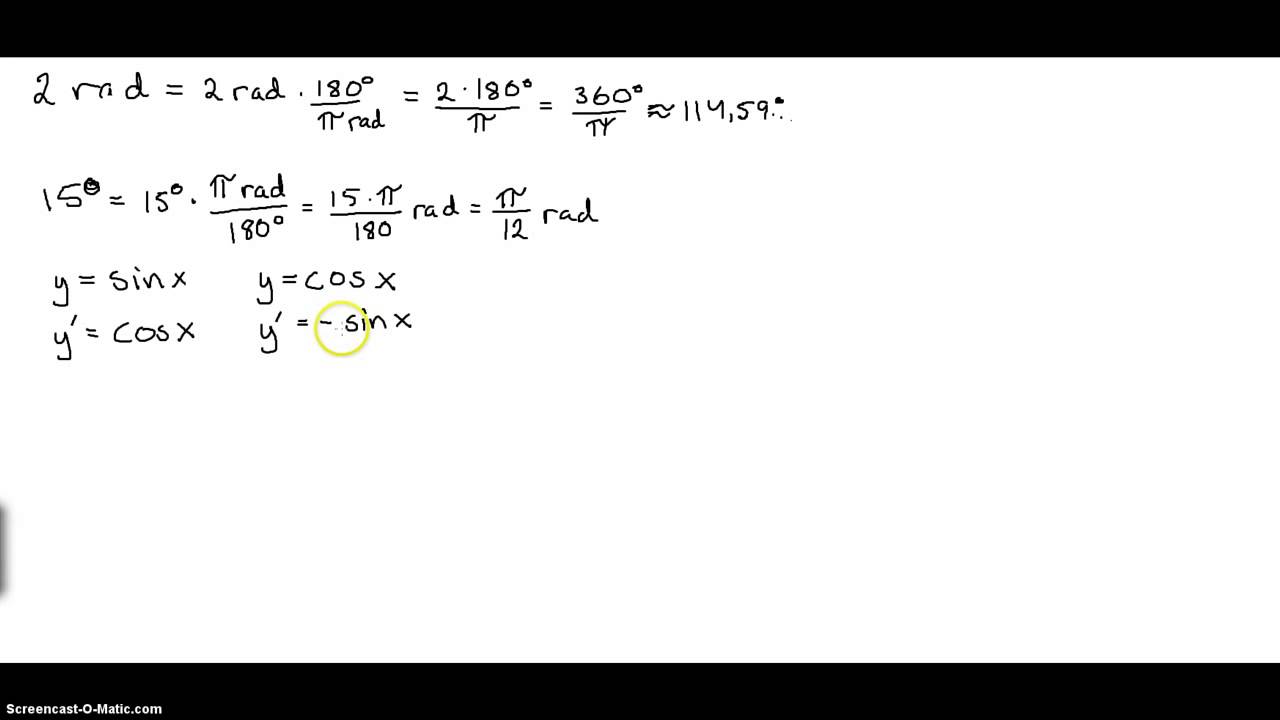 2 rad = 2 rad · 180°/π rad = 2 · 180°/π = 360°/π ≈ 114,59°
15° = 15° · π rad/180° = 15 · π/180 rad = π/12 rad
y = sin x y = cos x
y' = cos x y' = - sin x
Screencast-O-Matic.com